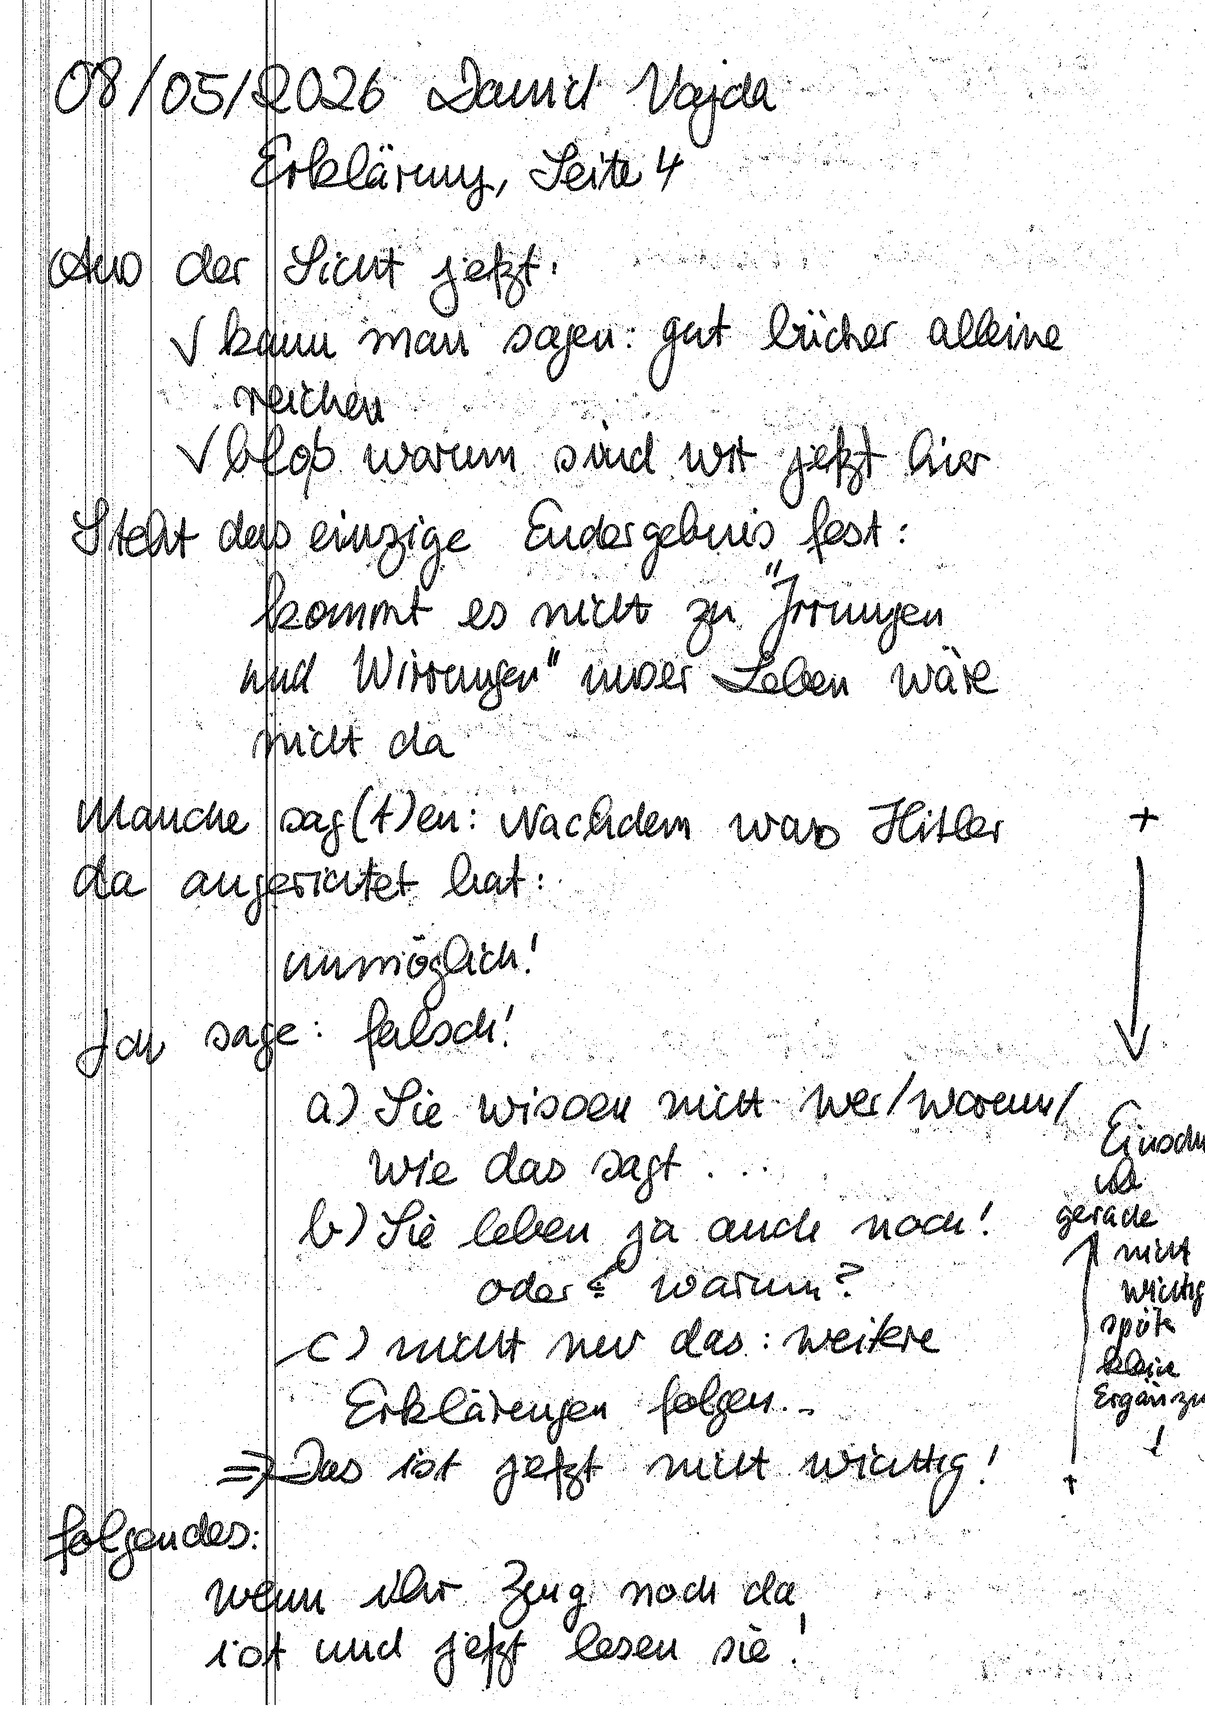 08/05/2026 David Vajda
Erklärung, Seite 4
Aus der Sicht jetzt:
√ kann man sagen: gut bücher alleine
reichen
√ bloß warum sind wir jetzt hier
Steht das einzige Endergebnis fest:
kommt es nicht zu "Irrungen
und Wirrungen" unser Leben wäre
nicht da
Manche sag(t)en: Nachdem was Hitler
da angerichtet hat:
unmöglich!
Ich sage: falsch!
a) Sie wissen nicht wer/warum/
wie das sagt ...
b) Sie leben ja auch noch!
oder warum?
c) nicht nur das: weitere
Erklärungen folgen...
⇒ Das ist jetzt nicht wichtig!
folgendes:
wenn ihr Zeug noch da
ist und jetzt lesen sie!
+
gerade
nicht
wichtig
kleine
+